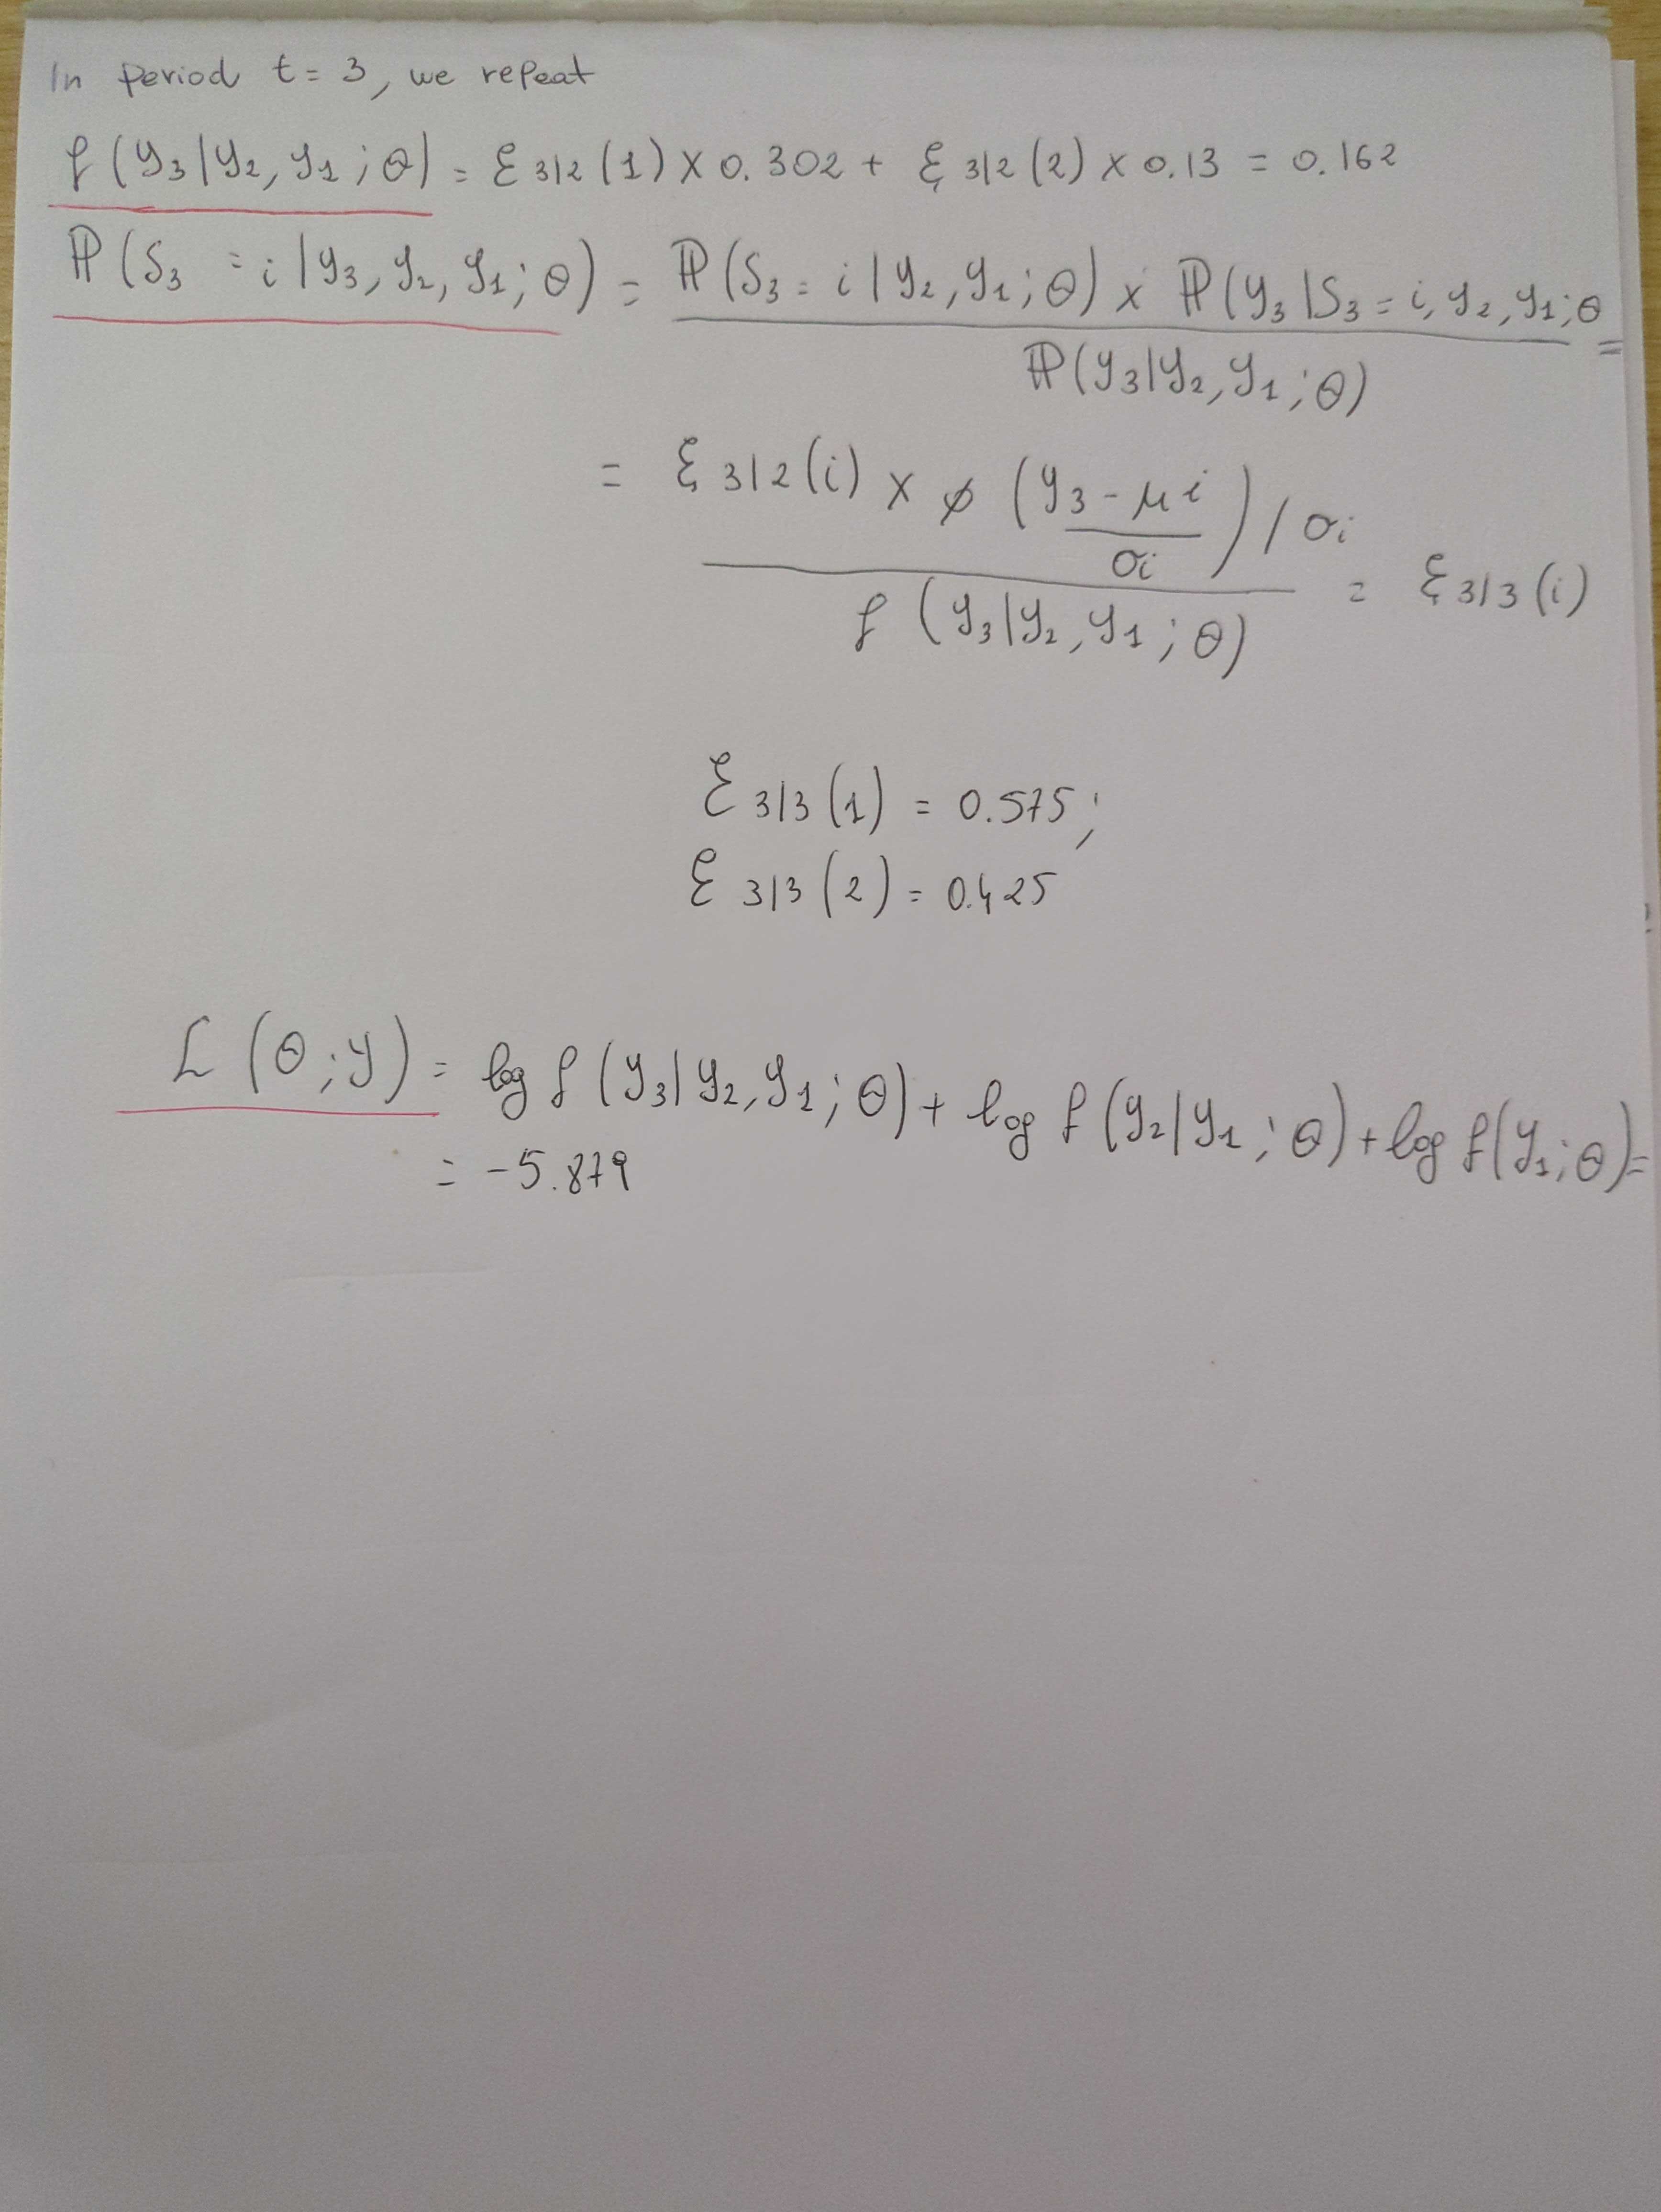 In period t = 3, we repeat
f (y3|y2, y1; θ) = ξ 3|2 (1) × 0.302 + ξ 3|2 (2) × 0.13 = 0.162
ℙ (S3 = i | y3, y2, y1; θ) = ℙ (S3 = i | y2, y1; θ) × ℙ (y3 | S3 = i, y2, y1; θ =
ℙ (y3|y2, y1; θ)
= ξ 3|2 (i) × ϕ (y3 - μi / σi) / σi
f (y3|y2, y1; θ) = ξ 3|3 (i)
ξ 3|3 (1) = 0.575;
ξ 3|3 (2) = 0.425
L (θ; y) = log f (y3|y2, y1; θ) + log f (y2|y1; θ) + log f(y1; θ) =
= -5.879